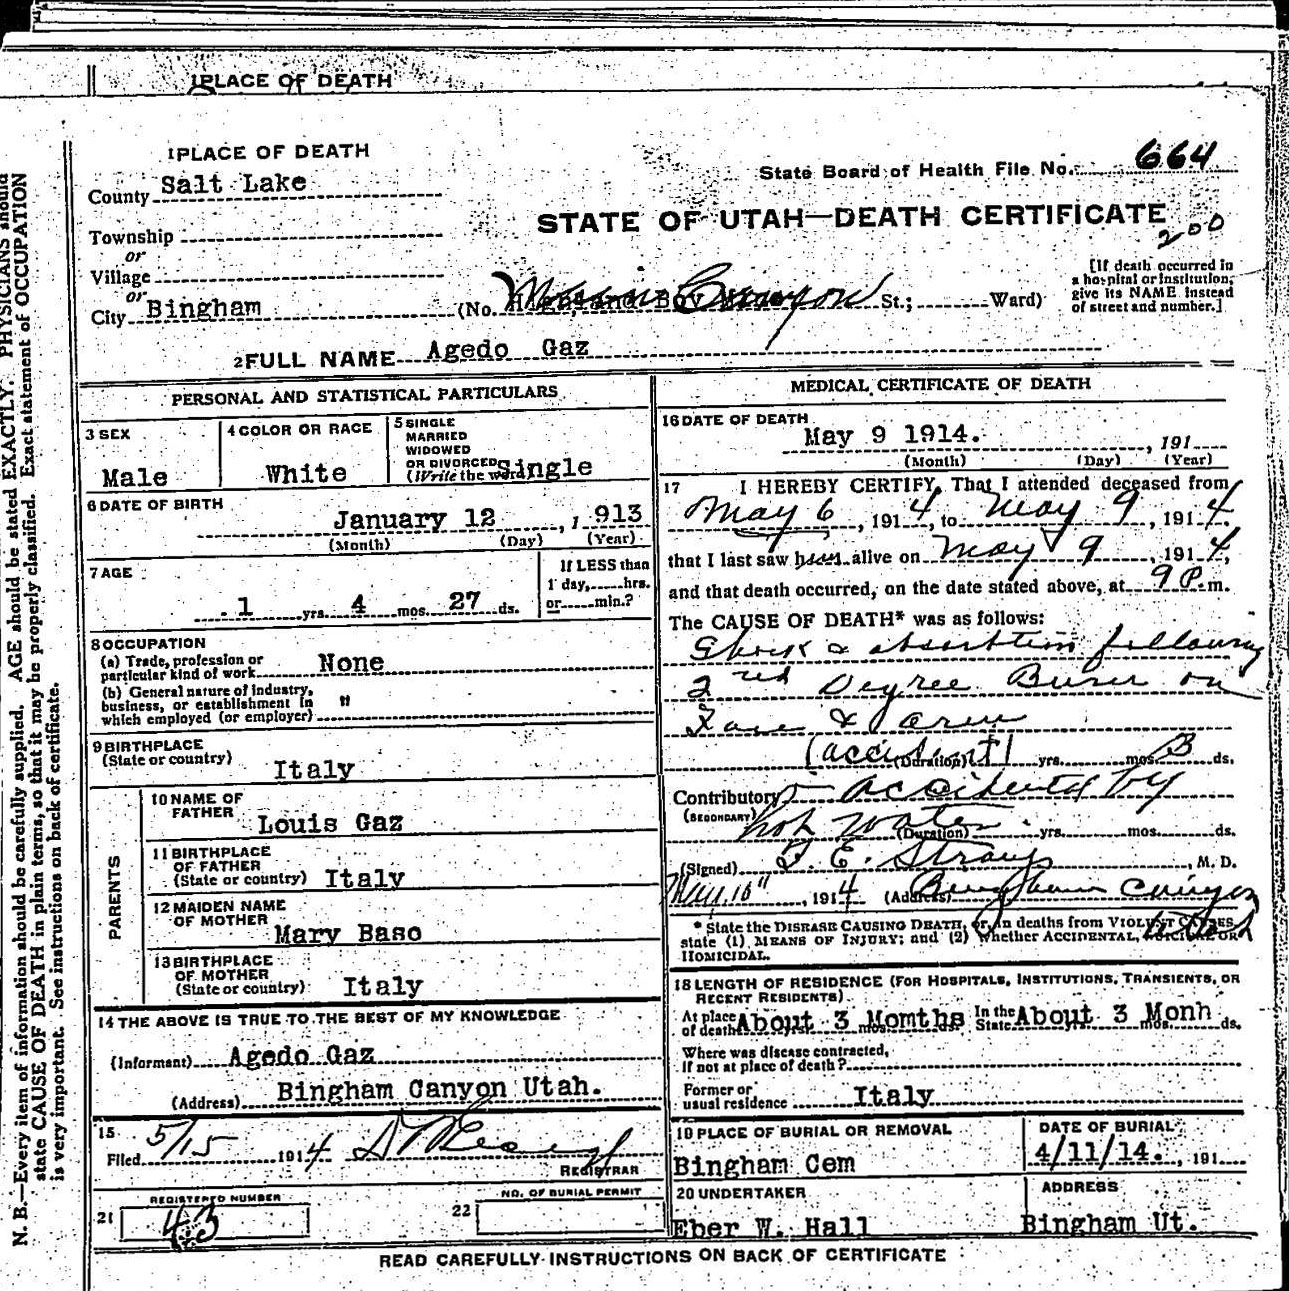 1 PLACE OF DEATH
1 PLACE OF DEATH
State Board of Health File No. 664
County Salt Lake
STATE OF UTAH—DEATH CERTIFICATE
200
Township
or
Village
or
City Bingham (No. Canyon St.; Ward)
[If death occurred in
a hospital or institution,
give its NAME instead
of street and number.]
2 FULL NAME Agedo Gaz
PERSONAL AND STATISTICAL PARTICULARS
3 SEX
Male
4 COLOR OR RACE
White
5 SINGLE
MARRIED
WIDOWED
OR DIVORCED
(Write the word) Single
6 DATE OF BIRTH
January 12, 1913
(Month) (Day) (Year)
7 AGE
1 yrs. 4 mos. 27 ds.
If LESS than
1 day, hrs.
or min.?
8 OCCUPATION
(a) Trade, profession or
particular kind of work None
(b) General nature of industry,
business, or establishment in "
which employed (or employer)
9 BIRTHPLACE
(State or country)
Italy
PARENTS
10 NAME OF
FATHER
Louis Gaz
11 BIRTHPLACE
OF FATHER
(State or country) Italy
12 MAIDEN NAME
OF MOTHER
Mary Baso
13 BIRTHPLACE
OF MOTHER
(State or country) Italy
14 THE ABOVE IS TRUE TO THE BEST OF MY KNOWLEDGE
(Informant) Agedo Gaz
(Address) Bingham Canyon Utah.
15
Filed 5/15 1914
REGISTRAR
REGISTERED NUMBER
21 43
NO. OF BURIAL PERMIT
22
MEDICAL CERTIFICATE OF DEATH
16 DATE OF DEATH
May 9 1914. , 191
(Month) (Day) (Year)
17 I HEREBY CERTIFY, That I attended deceased from
May 6, 1914, to May 9, 1914.
that I last saw alive on May 9, 1914,
and that death occurred, on the date stated above, at 9 P.m.
The CAUSE OF DEATH* was as follows:
Shock & absorbtion following
2nd Degree Burn on
Face & arm
(accident) (Duration) yrs. mos. 3 ds.
Contributory accidental by
(SECONDARY) hot water. (Duration) yrs. mos. ds.
(Signed) F. E. Straup, M. D.
May 10", 1914 (Address) Bingham Canyon
Utah
* State the DISEASE CAUSING DEATH, or, in deaths from VIOLENT CAUSES,
state (1) MEANS OF INJURY; and (2) whether ACCIDENTAL, SUICIDAL OR
HOMICIDAL.
18 LENGTH OF RESIDENCE (FOR HOSPITALS, INSTITUTIONS, TRANSIENTS, OR
RECENT RESIDENTS)
At place
of death About 3 Momths mos. ds. In the
State About 3 Monh mos. ds.
Where was disease contracted,
if not at place of death?
Former or
usual residence Italy
19 PLACE OF BURIAL OR REMOVAL
Bingham Cem
DATE OF BURIAL
4/11/14. , 191
20 UNDERTAKER
Eber W. Hall
ADDRESS
Bingham Ut.
READ CAREFULLY INSTRUCTIONS ON BACK OF CERTIFICATE
N. B.—Every item of information should be carefully supplied. AGE should be stated EXACTLY. PHYSICIANS should
state CAUSE OF DEATH in plain terms, so that it may be properly classified. Exact statement of OCCUPATION
is very important. See instructions on back of certificate.